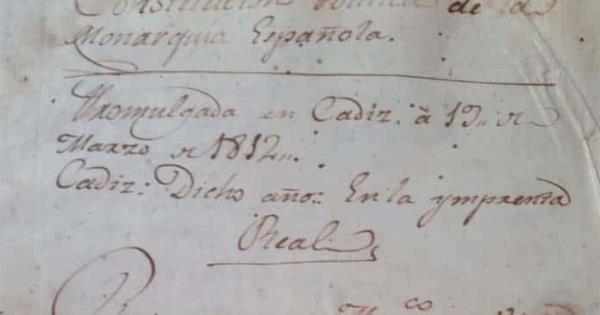 Constitucion Politica de la
Monarquia Española.
Promulgada en Cadiz. à 19,, de
Marzo de 1812,,.
Cadiz: Dicho año: En la ymprenta
Real